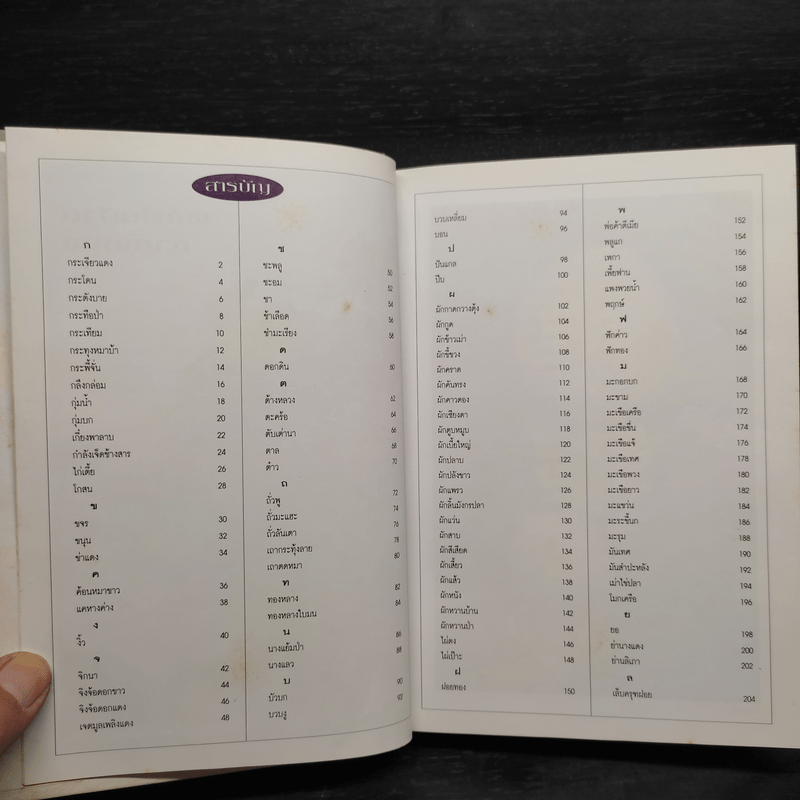 สารบัญ
ก
กระเจียวแดง 2
กระโดน 4
กระดังบาย 6
กระทือป่า 8
กระเทียม 10
กระทุงหมาบ้า 12
กระพี้จั่น 14
กลึงกล่อม 16
กุ่มน้ำ 18
กุ่มบก 20
เกี๋ยงพาลาบ 22
กำลังเจ็ดช้างสาร 24
ไก่เตี้ย 26
โกสน 28
ข
ขจร 30
ขนุน 32
ข่าแดง 34
ค
ค้อนหมาขาว 36
แคหางค่าง 38
ง
งิ้ว 40
จ
จิกนา 42
จิงจ้อดอกขาว 44
จิงจ้อดอกแดง 46
เจตมูลเพลิงแดง 48
ช
ชะพลู 50
ชะอม 52
ชา 54
ช้าเลือด 56
ชำมะเรียง 58
ด
ดอกดิน 60
ต
ต้างหลวง 62
ตะคร้อ 64
ตับเต่านา 66
ตาล 68
ต๋าว 70
ถ
ถั่วพู 72
ถั่วมะแฮะ 74
ถั่วลันเตา 76
เถากระทุ้งลาย 78
เถาตดหมา 80
ท
ทองหลาง 82
ทองหลางใบมน 84
น
นางแย้มป่า 86
นางแลว 88
บ
บัวบก 90
บวบงู 92
บวบเหลี่ยม 94
บอน 96
ป
ปันแกล 98
ปีบ 100
ผ
ผักกาดกวางตุ้ง 102
ผักกูด 104
ผักข้าวเม่า 106
ผักขี้ขวง 108
ผักคราด 110
ผักคันทรง 112
ผักคาวตอง 114
ผักเชียงดา 116
ผักตูบหมูบ 118
ผักเบี้ยใหญ่ 120
ผักปลาบ 122
ผักปลังขาว 124
ผักแพรว 126
ผักลิ้นมังกรปลา 128
ผักแว่น 130
ผักสาบ 132
ผักสีเสียด 134
ผักเสี้ยว 136
ผักแส้ว 138
ผักหนัง 140
ผักหวานบ้าน 142
ผักหวานป่า 144
ไผ่ตง 146
ไผ่เป๊าะ 148
ฝ
ฝอยทอง 150
พ
พ่อค้าตีเมีย 152
พลูแก 154
เพกา 156
เพี้ยฟาน 158
แพงพวยน้ำ 160
พฤกษ์ 162
ฟ
ฟักค่าว 164
ฟักทอง 166
ม
มะกอกบก 168
มะขาม 170
มะเขือเครือ 172
มะเขือขื่น 174
มะเขือแจ้ 176
มะเขือเทศ 178
มะเขือพวง 180
มะเขือยาว 182
มะแขว่น 184
มะระขี้นก 186
มะรุม 188
มันเทศ 190
มันสำปะหลัง 192
เม่าไข่ปลา 194
โมกเครือ 196
ย
ยอ 198
ย่านางแดง 200
ย่านลิเภา 202
ล
เล็บครุฑฝอย 204